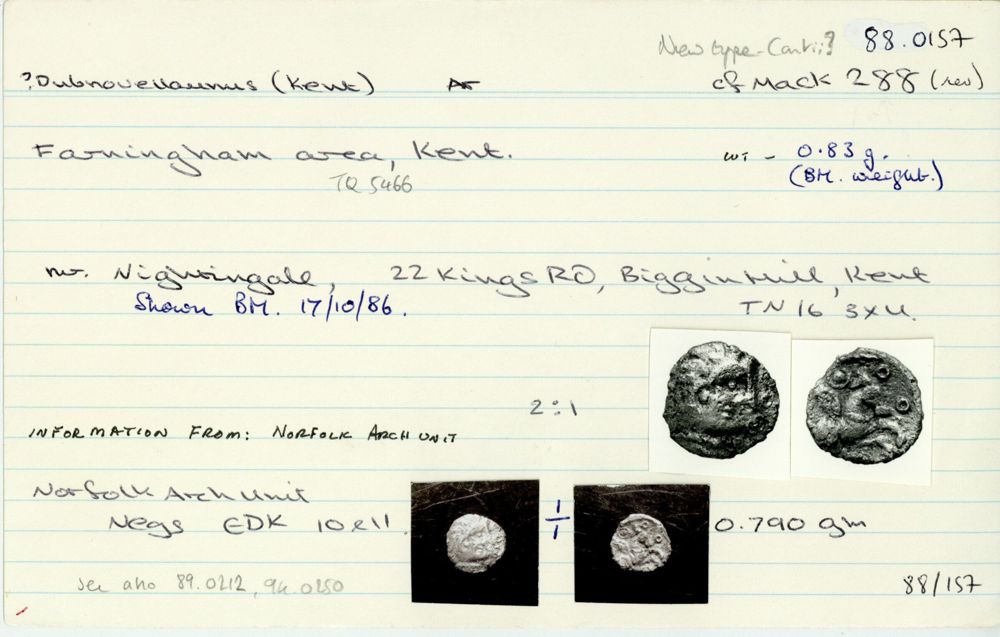 New type - Cantii? 88.0157
?Dubnovellaunus (Kent) AR cf Mack 288 (rev)
Farningham area, Kent. WT - 0.83 g.
TQ 5466 (BM. weight.)
mr. Nightingale, 22 Kings RD, Biggin Hill, Kent
Shown BM. 17/10/86. TN16 3XU.
2:1
INFORMATION FROM: NORFOLK ARCH UNIT
Norfolk Arch Unit
Negs EDK 10 & 11. 1/1 0.790 gm
see also 89.0212, 94.0250 88/157